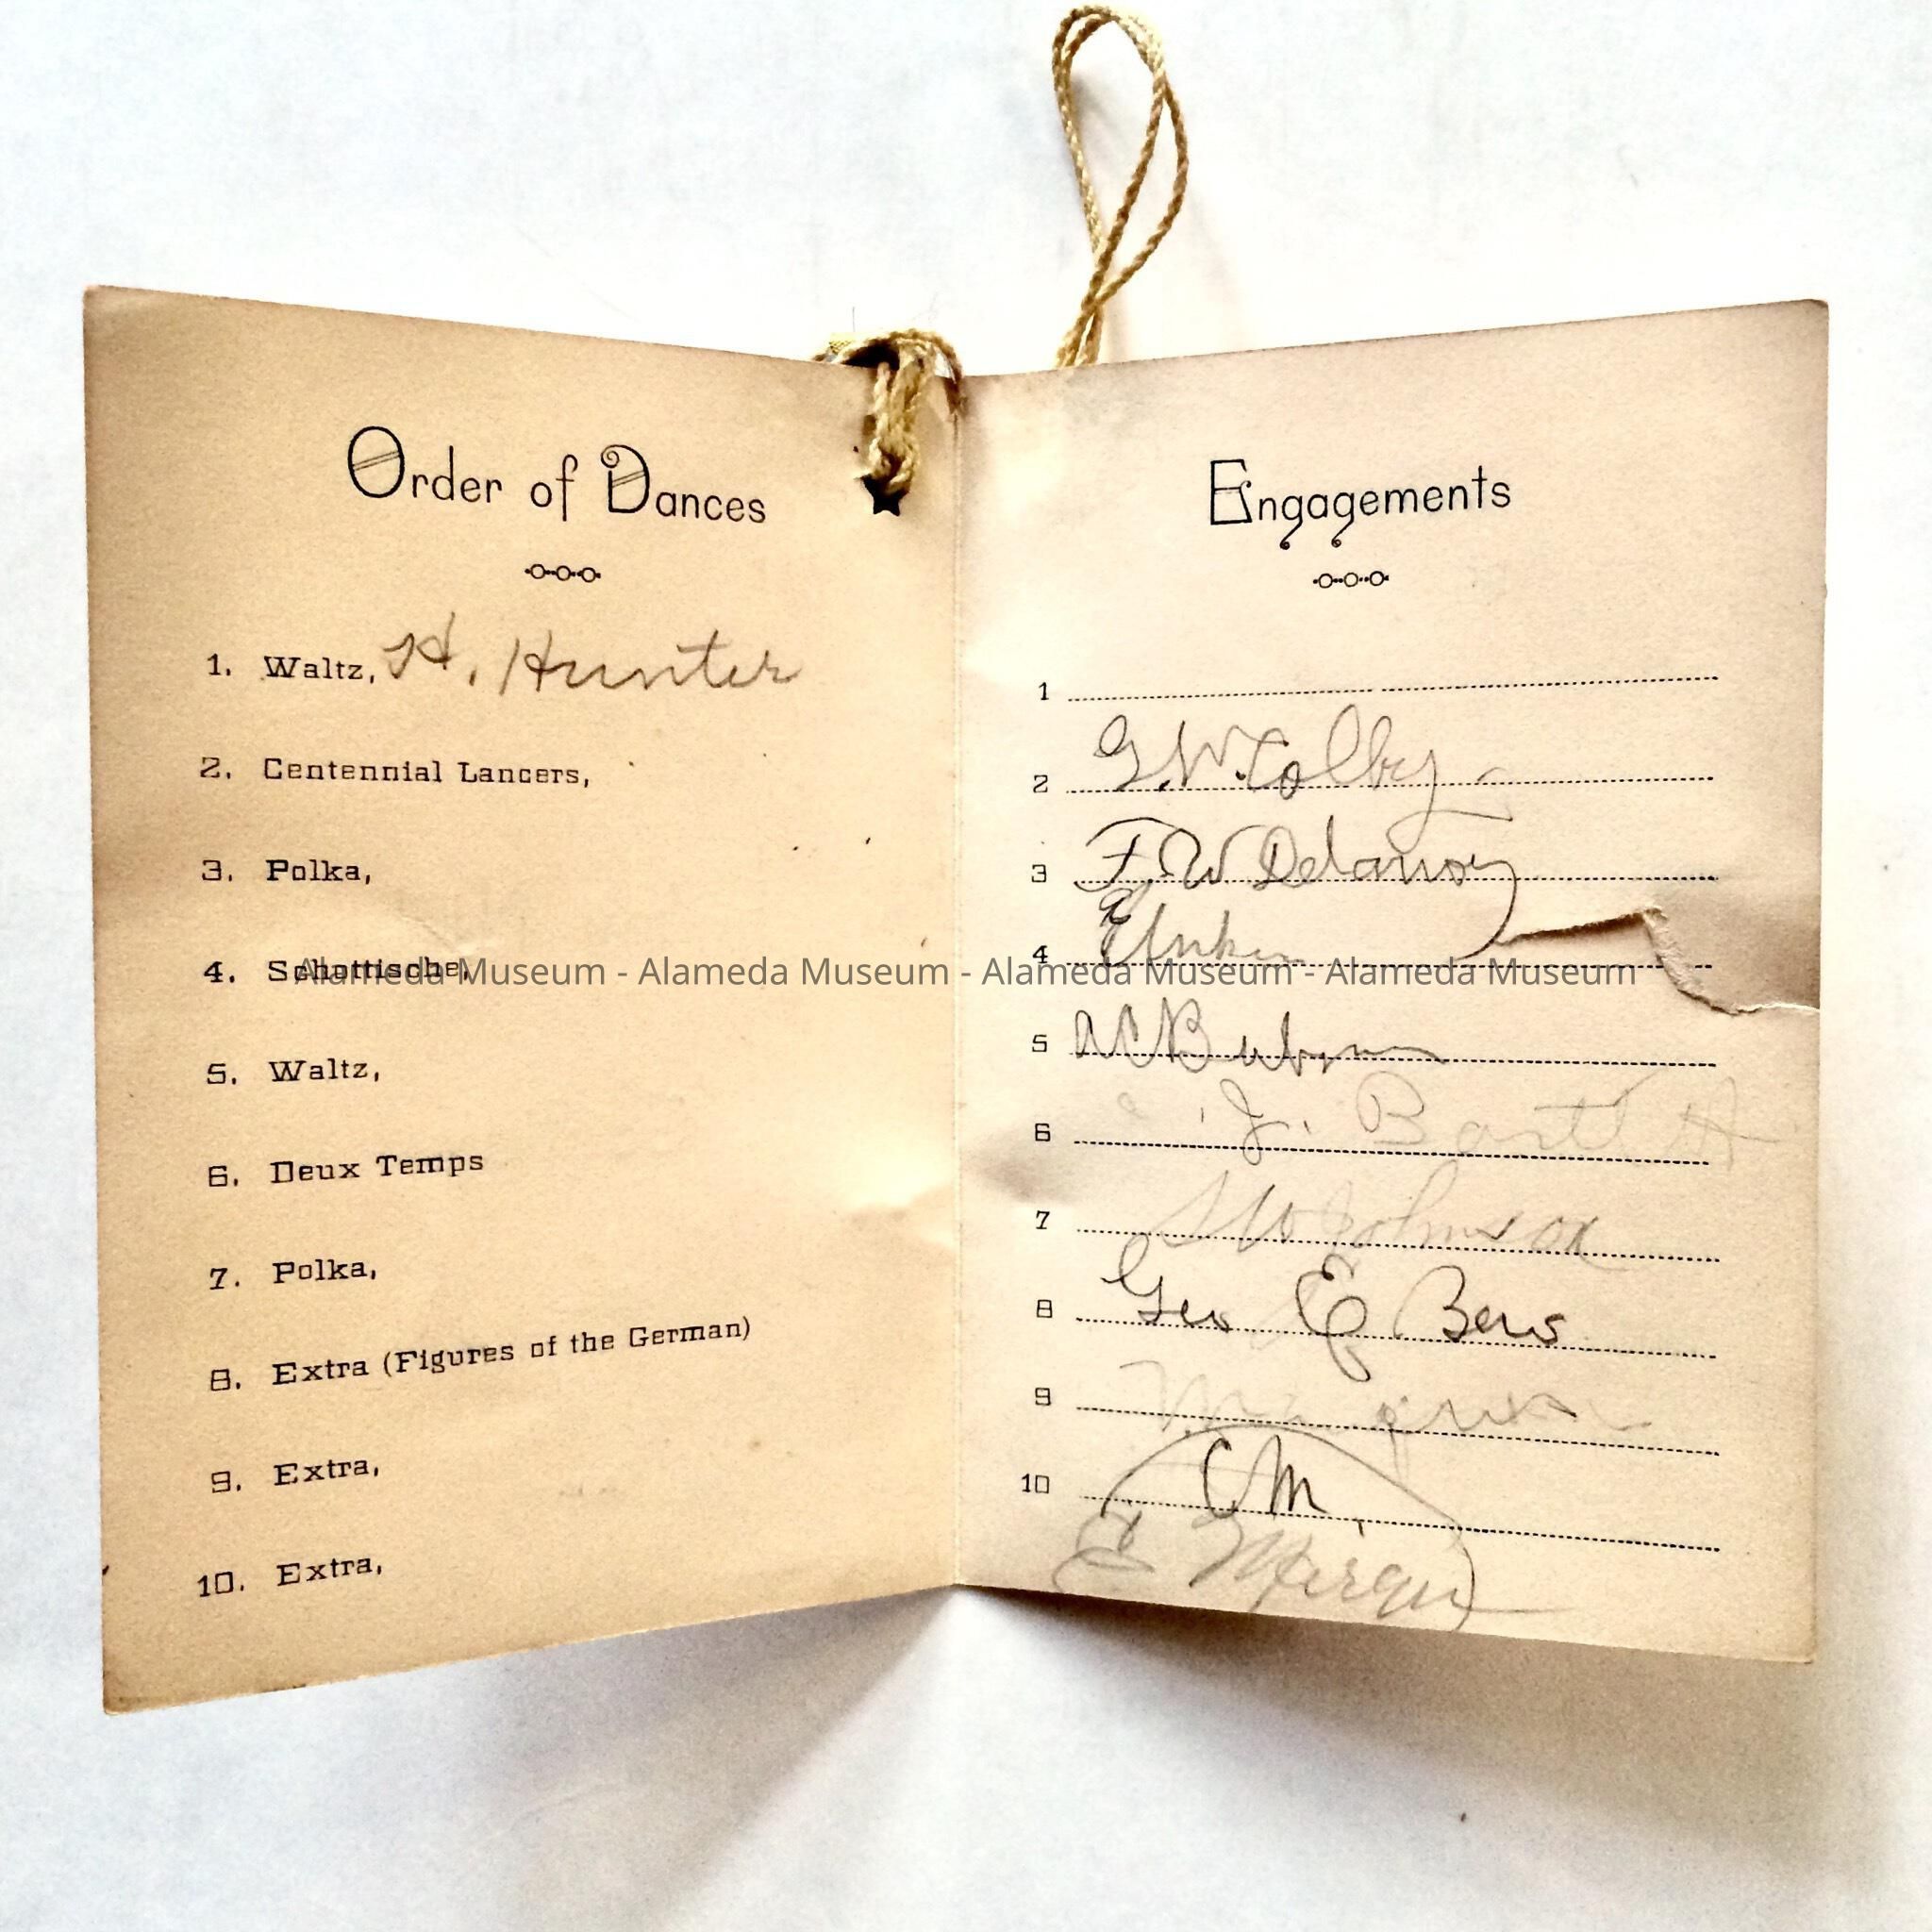 Order of Dances
1. Waltz, H. Hunter
2. Centennial Lancers,
3. Polka,
4. Schottische,
5. Waltz,
6. Deux Temps
7. Polka,
8. Extra (Figures of the German)
9. Extra,
10. Extra,
Engagements
1
2 G. W. Colby
3 F. W Delanoy
4
5
6 J.
7 Johnson
8 Geo E
9
10 C M
Alameda Museum - Alameda Museum - Alameda Museum - Alameda Museum